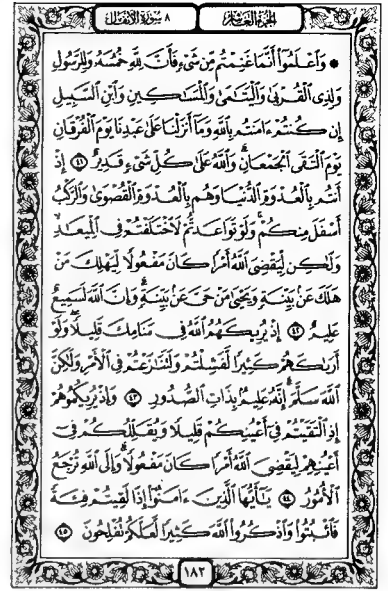 الجزء العاشر ٨ سورة الأنفال
۞ وَٱعْلَمُوٓا۟ أَنَّمَا غَنِمْتُم مِّن شَىْءٍ فَأَنَّ لِلَّهِ خُمُسَهُۥ وَلِلرَّسُولِ
وَلِذِى ٱلْقُرْبَىٰ وَٱلْيَتَٰمَىٰ وَٱلْمَسَٰكِينِ وَٱبْنِ ٱلسَّبِيلِ
إِن كُنتُمْ ءَامَنتُم بِٱللَّهِ وَمَآ أَنزَلْنَا عَلَىٰ عَبْدِنَا يَوْمَ ٱلْفُرْقَانِ
يَوْمَ ٱلْتَقَى ٱلْجَمْعَانِ ۗ وَٱللَّهُ عَلَىٰ كُلِّ شَىْءٍ قَدِيرٌ ٤١ إِذْ
أَنتُم بِٱلْعُدْوَةِ ٱلدُّنْيَا وَهُم بِٱلْعُدْوَةِ ٱلْقُصْوَىٰ وَٱلرَّكْبُ
أَسْفَلَ مِنكُمْ ۚ وَلَوْ تَوَاعَدتُّمْ لَٱخْتَلَفْتُمْ فِى ٱلْمِيعَٰدِ ۙ
وَلَٰكِن لِّيَقْضِىَ ٱللَّهُ أَمْرًا كَانَ مَفْعُولًا لِّيَهْلِكَ مَنْ
هَلَكَ عَنۢ بَيِّنَةٍ وَيَحْيَىٰ مَنْ حَىَّ عَنۢ بَيِّنَةٍ ۗ وَإِنَّ ٱللَّهَ لَسَمِيعٌ
عَلِيمٌ ٤٢ إِذْ يُرِيكَهُمُ ٱللَّهُ فِى مَنَامِكَ قَلِيلًا ۖ وَلَوْ
أَرَىٰكَهُمْ كَثِيرًا لَّفَشِلْتُمْ وَلَتَنَٰزَعْتُمْ فِى ٱلْأَمْرِ وَلَٰكِنَّ
ٱللَّهَ سَلَّمَ ۗ إِنَّهُۥ عَلِيمٌۢ بِذَاتِ ٱلصُّدُورِ ٤٣ وَإِذْ يُرِيكُمُوهُمْ
إِذِ ٱلْتَقَيْتُمْ فِىٓ أَعْيُنِكُمْ قَلِيلًا وَيُقَلِّلُكُمْ فِىٓ
أَعْيُنِهِمْ لِيَقْضِىَ ٱللَّهُ أَمْرًا كَانَ مَفْعُولًا ۗ وَإِلَى ٱللَّهِ تُرْجَعُ
ٱلْأُمُورُ ٤٤ يَٰٓأَيُّهَا ٱلَّذِينَ ءَامَنُوٓا۟ إِذَا لَقِيتُمْ فِئَةً
فَٱثْبُتُوا۟ وَٱذْكُرُوا۟ ٱللَّهَ كَثِيرًا لَّعَلَّكُمْ تُفْلِحُونَ ٤٥
١٨٢